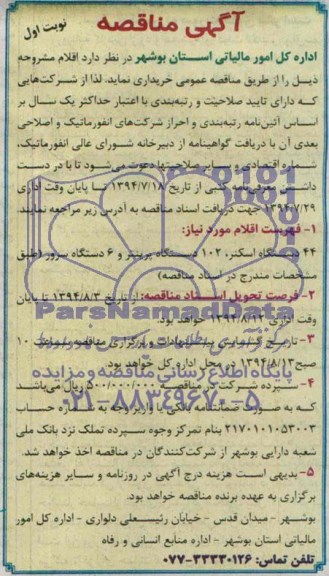 آگهی مناقصه
نوبت اول
اداره کل امور مالیاتی استان بوشهر در نظر دارد اقلام مشروحه
ذیل را از طریق مناقصه عمومی خریداری نماید، لذا از شرکت‌هایی
که دارای تایید صلاحیت و رتبه‌بندی با اعتبار حداکثر یک سال بر
اساس آئین‌نامه رتبه‌بندی و احراز شرکت‌های انفورماتیک و اصلاحی
بعدی آن با دریافت گواهینامه از دبیرخانه شورای عالی انفورماتیک،
شماره اقتصادی و سایر صلاحیتها دعوت می‌شود تا با در دست
داشتن معرفی‌نامه کتبی از تاریخ ۱۳۹۴/۷/۱۸ تا پایان وقت اداری
۱۳۹۴/۷/۲۹ جهت دریافت اسناد مناقصه به آدرس زیر مراجعه نمایند.
۱- فهرست اقلام مورد نیاز:
۴۴ دستگاه اسکنر، ۱۰۲ دستگاه پرینتر و ۶ دستگاه سرور (طبق
مشخصات مندرج در اسناد مناقصه)
۲- فرصت تحویل اسناد مناقصه: از تاریخ ۱۳۹۴/۸/۳ تا پایان
وقت اداری ۱۳۹۴/۸/۱۲ خواهد بود.
۳- تاریخ پیشنهادات و برگزاری مناقصه ساعت ۱۰
صبح ۱۳۹۴/۸/۱۳ در محل اداره کل خواهد بود.
۴- سپرده شرکت در مناقصه ۵۰۰/۰۰۰/۰۰۰ ریال می‌باشد
که به صورت ضمانتنامه بانکی یا واریز وجه به شماره حساب
۲۱۷۰۱۰۱۰۵۳۰۰۳ بنام تمرکز وجوه سپرده تملک نزد بانک ملی
شعبه دارایی بوشهر از شرکت‌کنندگان در مناقصه اخذ خواهد شد.
۵- بدیهی است هزینه درج آگهی در روزنامه و سایر هزینه‌های
برگزاری به عهده برنده مناقصه خواهد بود.
بوشهر - میدان قدس - خیابان رئیسعلی دلواری - اداره کل امور
مالیاتی استان بوشهر - اداره منابع انسانی و رفاه
تلفن تماس: ۳۳۳۳۰۱۲۶-۰۷۷
ParsNamadData
پایگاه اطلاع رسانی مناقصه و مزایده
۰۲۱-۸۸۳۴۹۶۷۰-۵